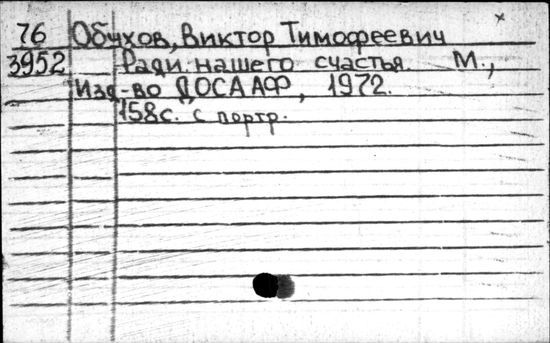 76 Обухов, Виктор Тимофеевич
3952 Ради нашего счастья. М.,
Изд-во ДОСААФ, 1972.
158с. с портр.